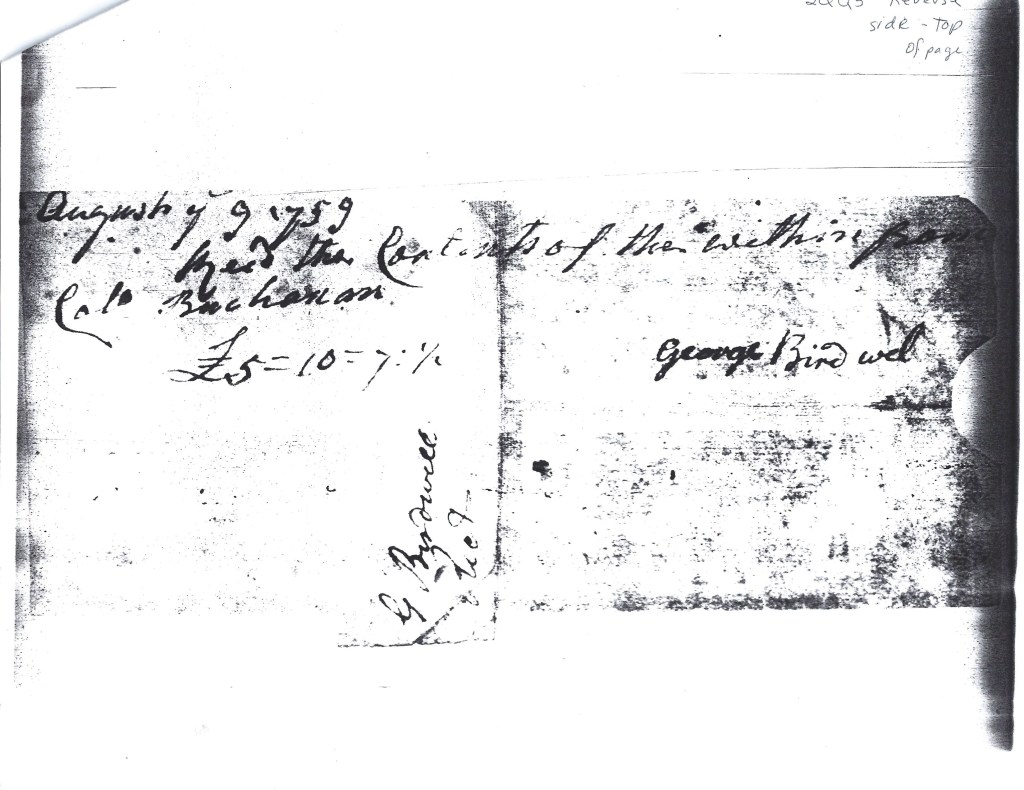 2QQ5 Reverse
side - Top
of page.
August ye 9 1759
Recd the Contents of the within from
Colo Buchanan
£5=10=7:½
George Birdwel
G Birdwell
Act